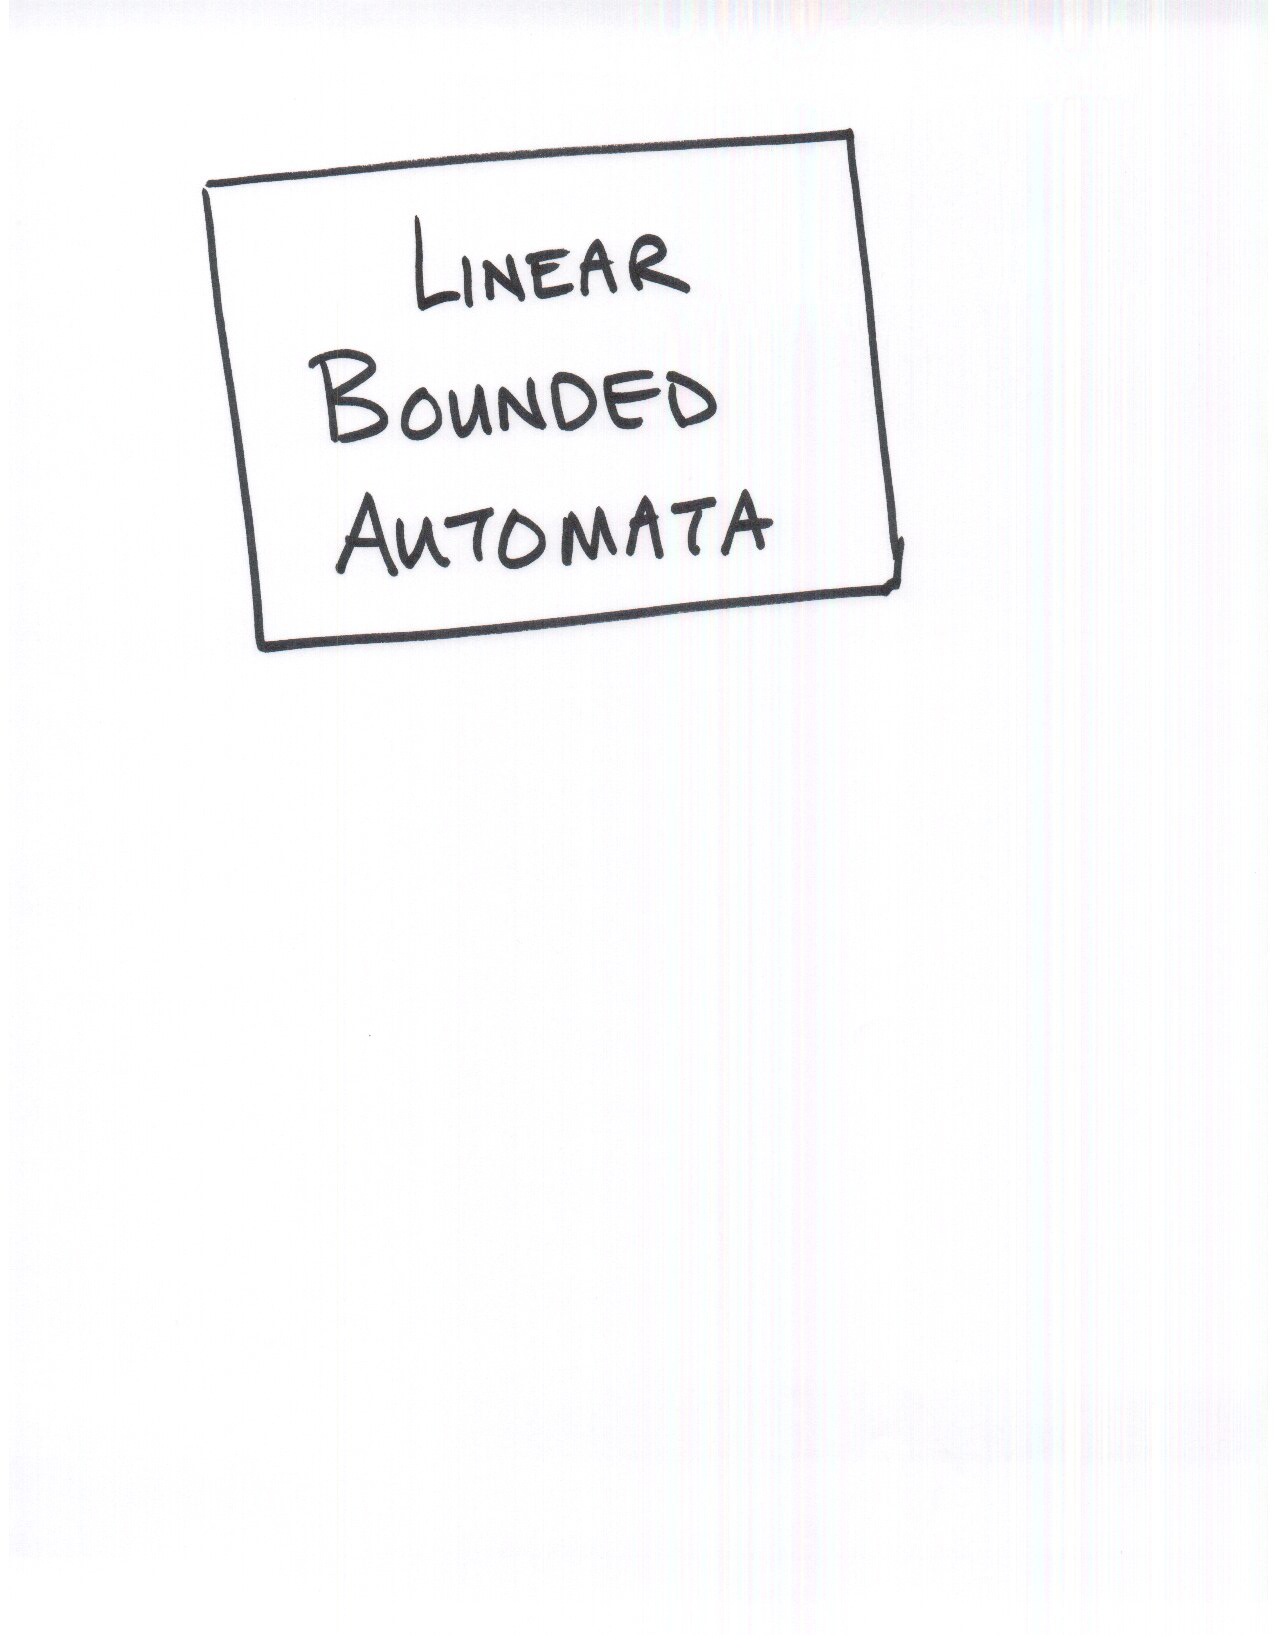 LINEAR
BOUNDED
AUTOMATA